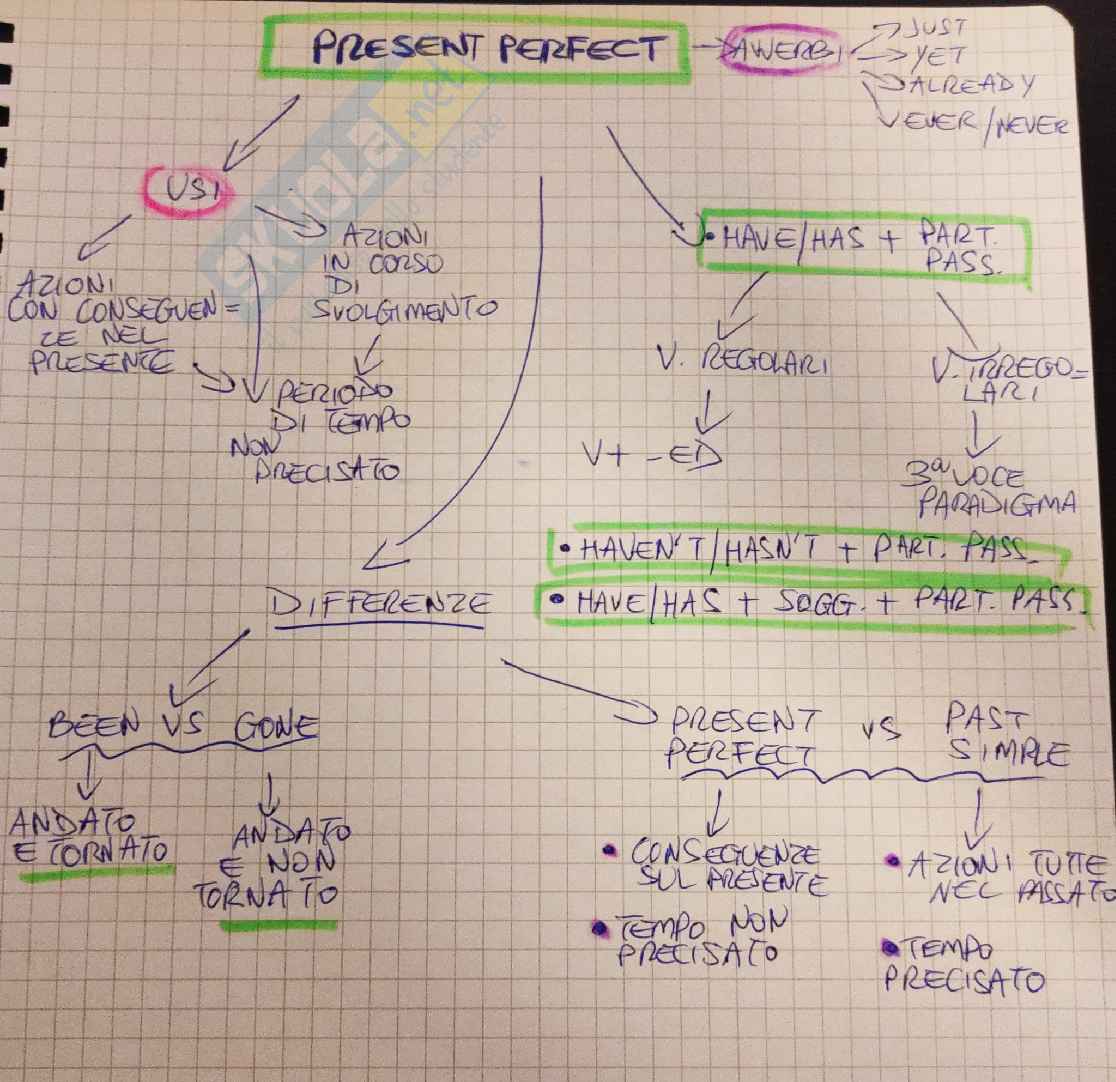 PRESENT PERFECT
AVVERBI
JUST
YET
ALREADY
EVER/NEVER
SKUOLA.net
USI
AZIONI
CON CONSEGUEN=
ZE NEL
PRESENTE
AZIONI
IN CORSO
DI
SVOLGIMENTO
PERIODO
DI TEMPO
NON
PRECISATO
• HAVE/HAS + PART.
PASS.
V. REGOLARI
V + -ED
V. IRREGO=
LARI
3ª VOCE
PARADIGMA
• HAVEN'T/HASN'T + PART. PASS.
• HAVE/HAS + SOGG. + PART. PASS.
DIFFERENZE
BEEN VS GONE
ANDATO
E TORNATO
ANDATO
E NON
TORNATO
PRESENT
PERFECT
VS
PAST
SIMPLE
• CONSEGUENZE
SUL PRESENTE
• TEMPO NON
PRECISATO
• AZIONI TUTTE
NEL PASSATO
• TEMPO
PRECISATO